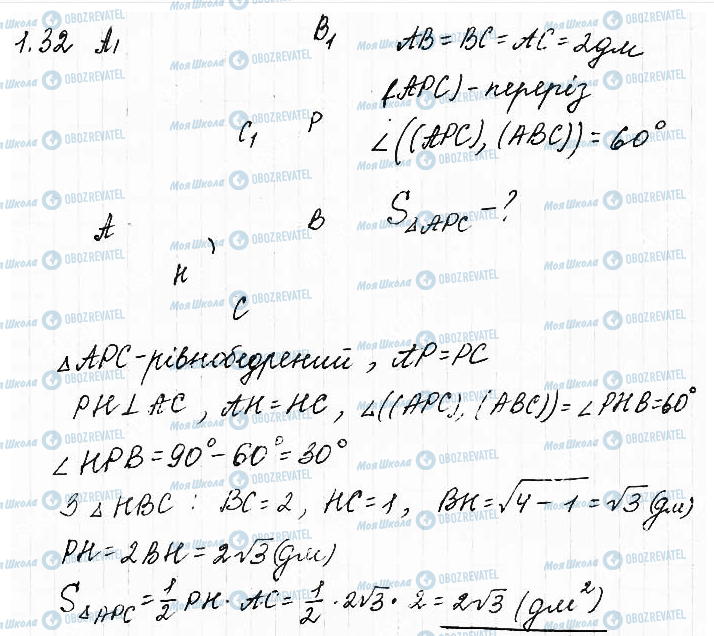 1.32 A₁ B₁ AB = BC = AC = 2дм
(APC) - переріз
C₁ P ∠((APC), (ABC)) = 60°
A B S△APC - ?
H
C
△APC - рівнобедрений, AP = PC
PH ⊥ AC, AH = HC, ∠((APC), (ABC)) = ∠PHB = 60°
∠HPB = 90° - 60° = 30°
З △HBC: BC = 2, HC = 1, BH = √4 - 1 = √3 (дм)
PH = 2BH = 2√3 (дм)
S△APC = 1/2 PH · AC = 1/2 · 2√3 · 2 = 2√3 (дм²)
МояШкола OBOZREVATEL